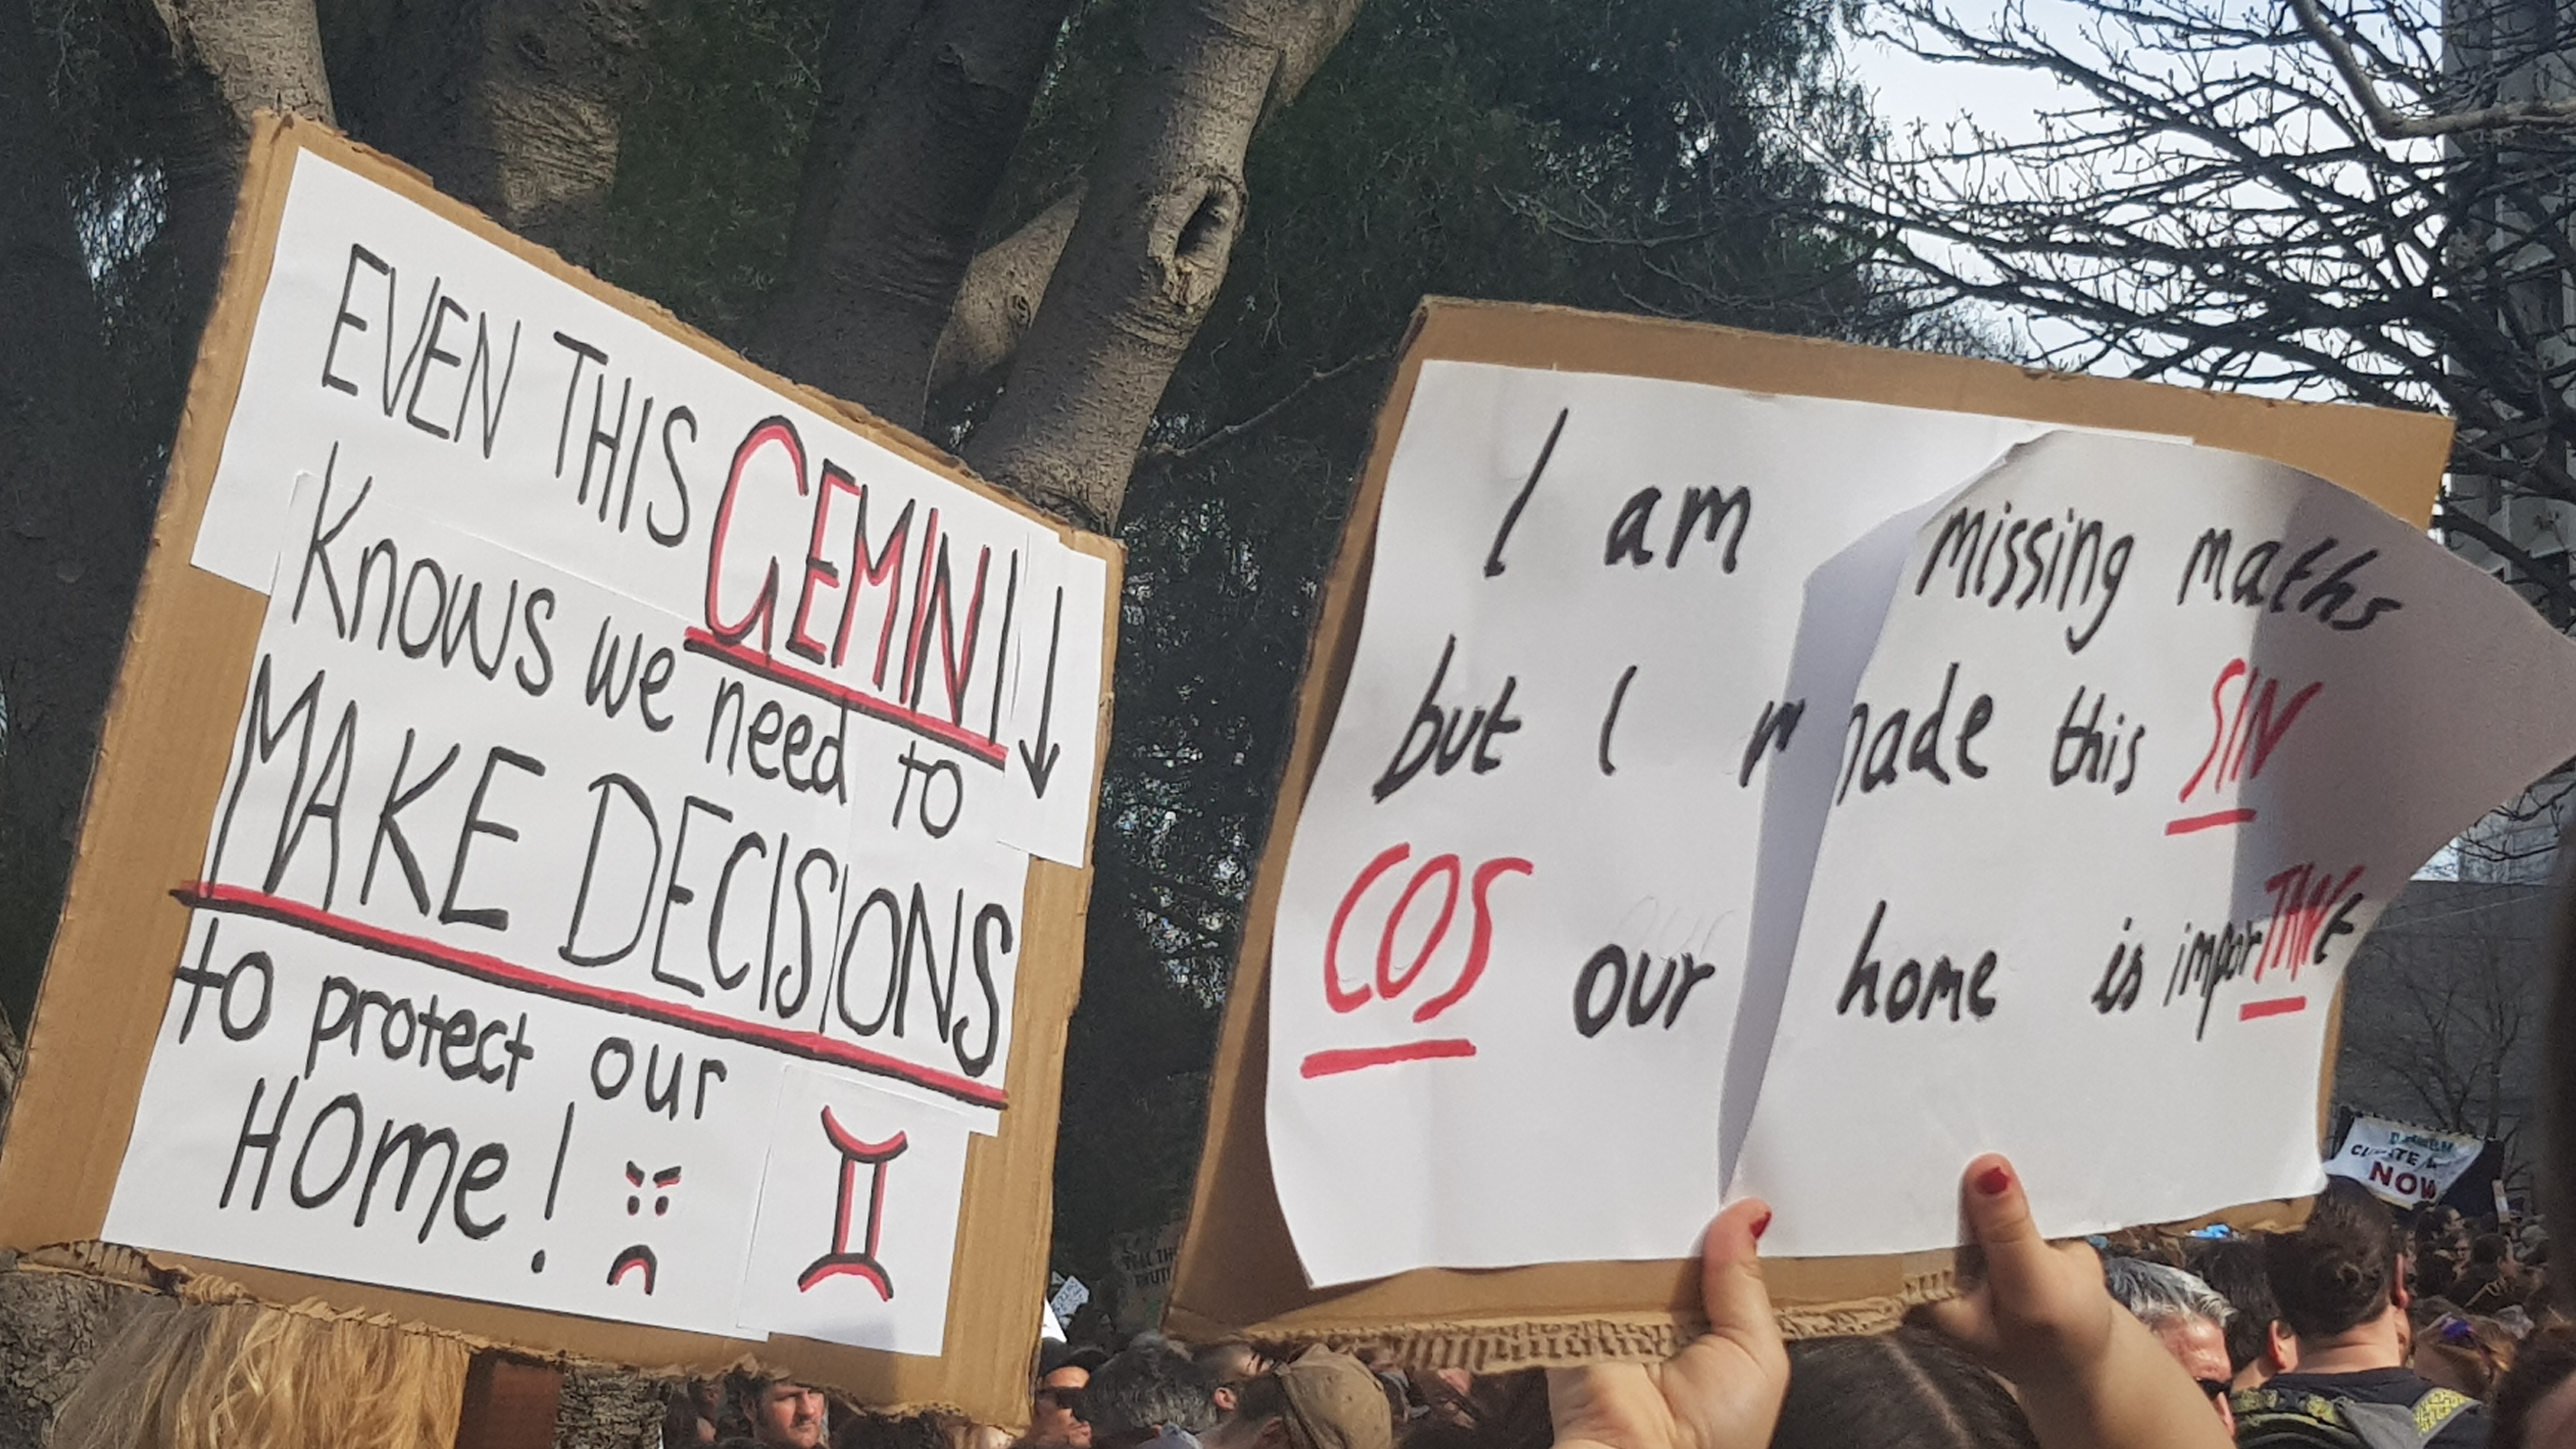 EVEN THIS GEMINI ↓
Knows we need to
MAKE DECISIONS
to protect our
HOme!
I am missing maths
but I made this SIN
COS our home is imporTANt
NOW